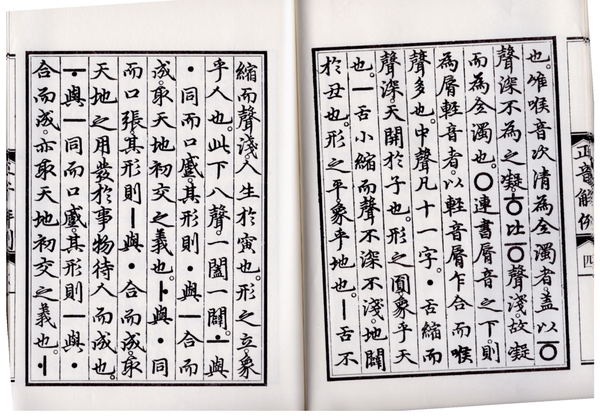 正音解例
四
也。唯喉音次清為全濁者。盖以ㆆ
聲深不為之凝。ㅎ比ㆆ聲淺。故凝
而為全濁也。ㅇ連書脣音之下。則
為脣輕音者。以輕音脣乍合而喉
聲多也。中聲凡十一字。ㆍ舌縮而
聲深。天開於子也。形之圓。象乎天
也。ㅡ舌小縮而聲不深不淺。地闢
於丑也。形之平。象乎地也。ㅣ舌不
縮而聲淺。人生於寅也。形之立。象
乎人也。此下八聲。一闔一闢。ㅗ與
ㆍ同而口蹙。其形則ㆍ與ㅡ合而
成。取天地初交之義也。ㅏ與ㆍ同
而口張。其形則ㅣ與ㆍ合而成。取
天地之用發於事物待人而成也。
ㅜ與ㅡ同而口蹙。其形則ㅡ與ㆍ
合而成。亦取天地初交之義也。ㅓ